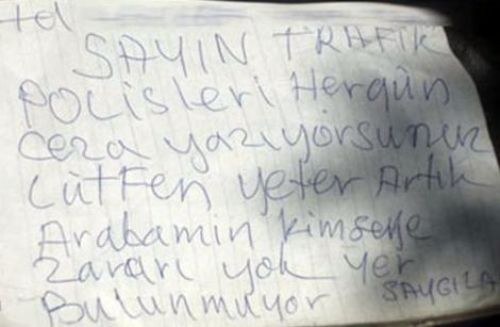 SAYIN TRAFİK
POLisleri Hergün
Ceza yazıyorsunuz
LÜTFEN yeter Artık
Arabamin kimseye
zararı yok yer
Bulunmuyor SAYGILA